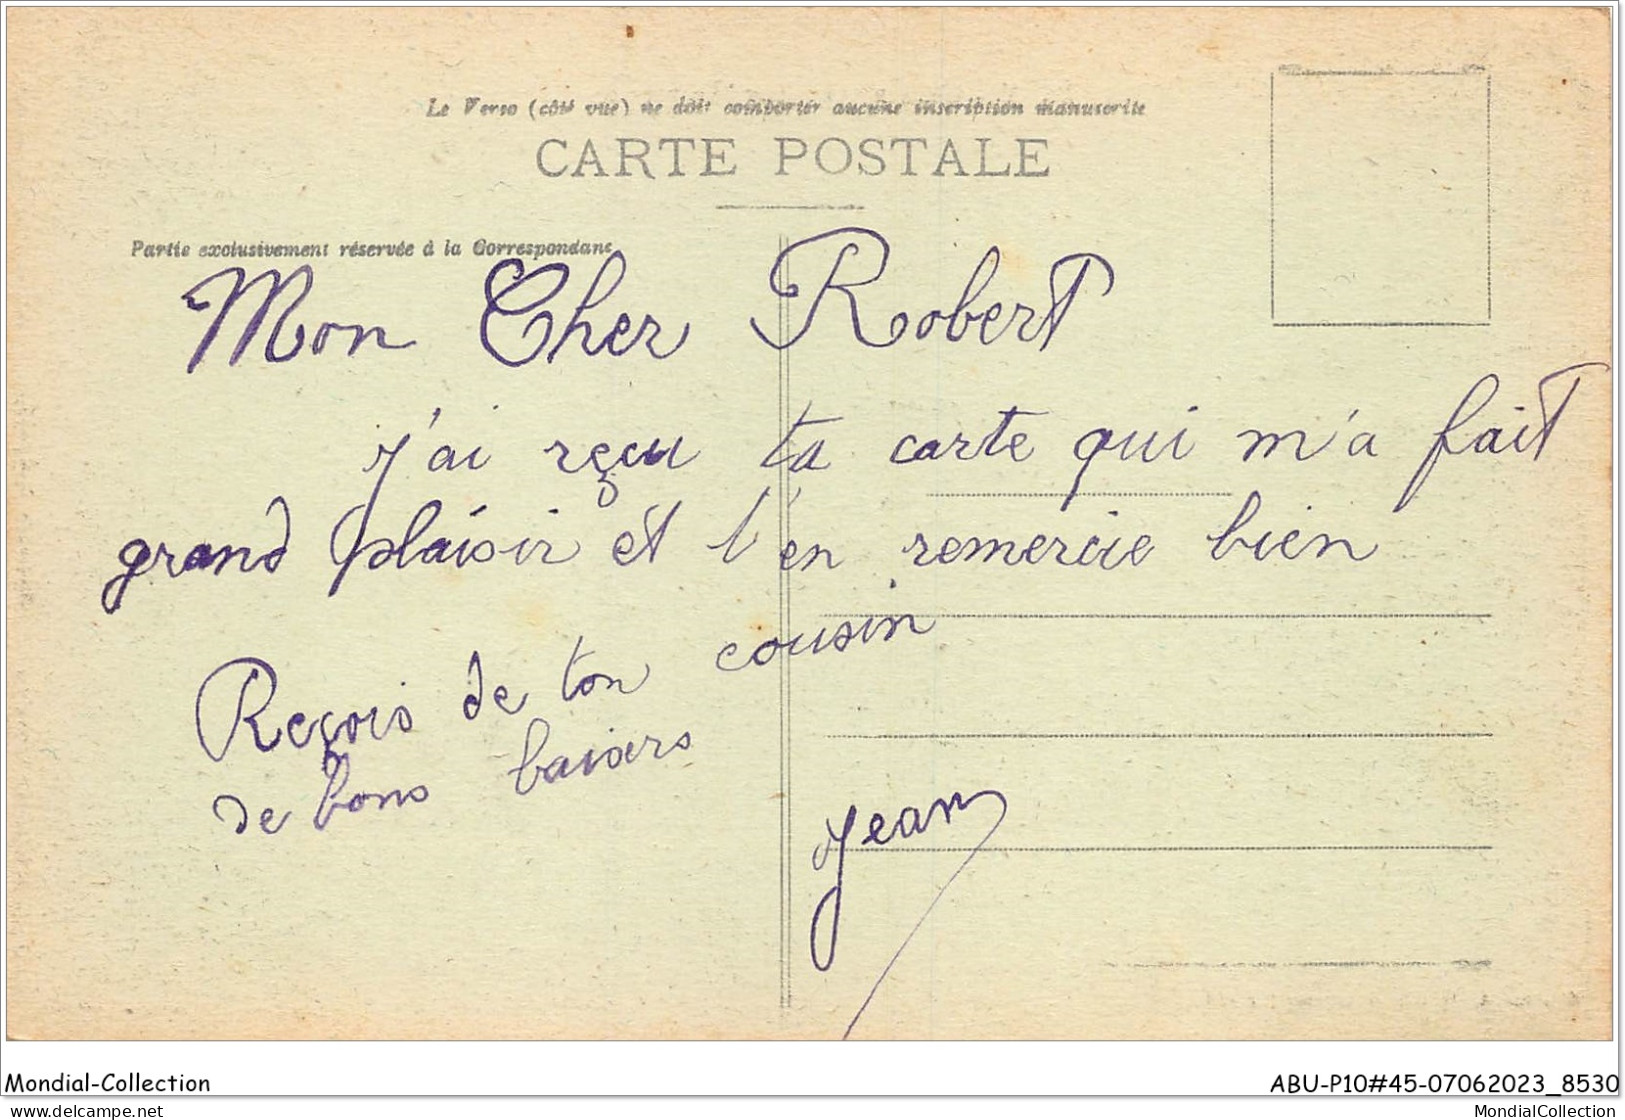 Le Verso (côté vue) ne doit comporter aucune inscription manuscrite
CARTE POSTALE
Partie exclusivement réservée à la Correspondanc
Mon Cher Robert
j'ai reçu ta carte qui m'a fait
grand plaisir et t'en remercie bien
Reçois de ton cousin
de bons baisers
Jean
Mondial-Collection
ABU-P10#45-07062023_8530
delcampe.net
MondialCollection